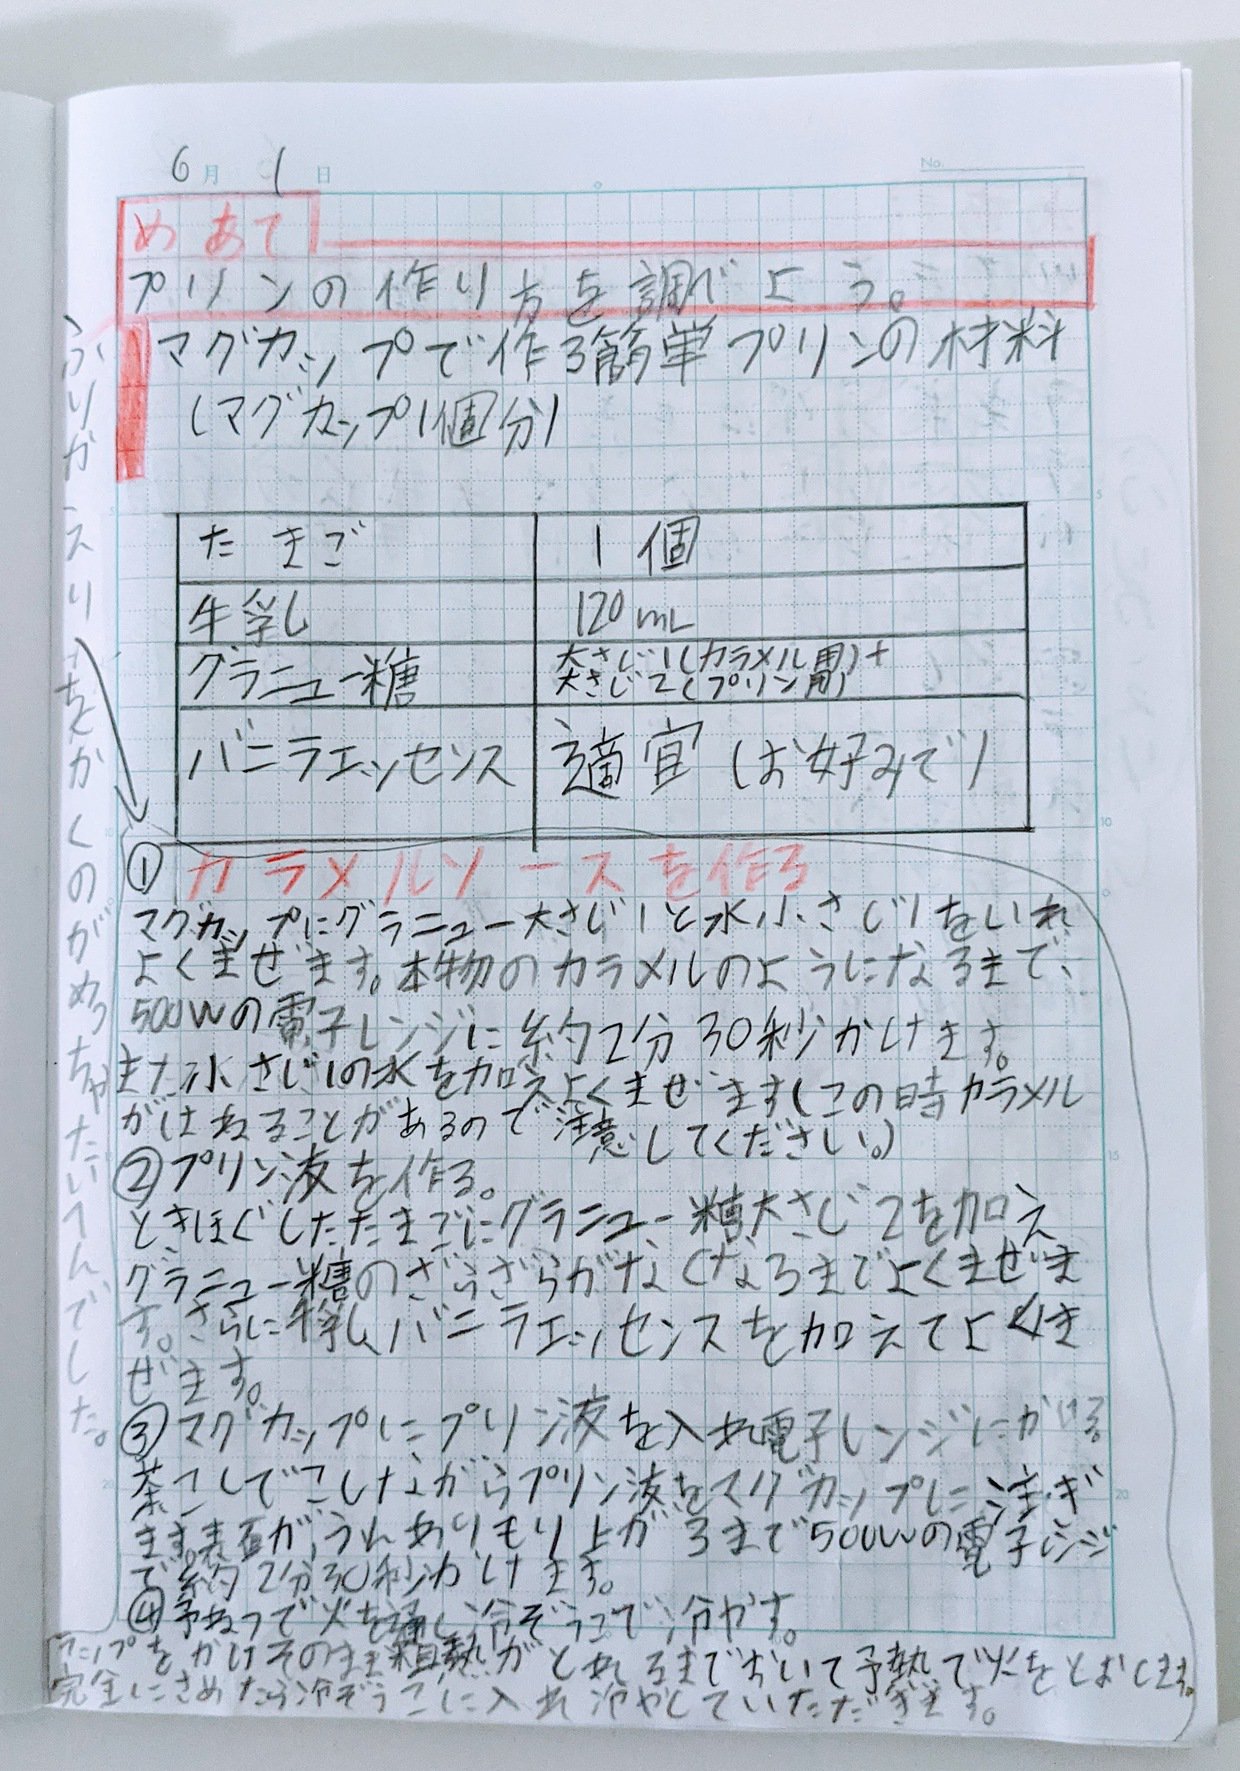 6月 1日
No.
めあて
プリンの作り方を調べよう。
マグカップで作る簡単プリンの材料
(マグカップ1個分)
たまご 1個
牛乳 120mL
グラニュー糖 大さじ1(カラメル用)+
大さじ2(プリン用)
バニラエッセンス 適宜(お好みで)
① カラメルソースを作る
マグカップにグラニュー大さじ1と水小さじ1をいれ
よくまぜます。本物のカラメルのようになるまで、
500Wの電子レンジに約2分30秒かけます。
また小さじ1の水を加えよくまぜます(この時カラメル
がはねることがあるので注意してください。)
②プリン液を作る。
ときほぐしたたまごにグラニュー糖大さじ2を加え
グラニュー糖のざらざらがなくなるまでよくまぜま
す。さらに牛乳、バニラエッセンスを加えてよくま
ぜます。
③マグカップにプリン液を入れ電子レンジにかける。
茶こしでこしながらプリン液をマグカップに注ぎ
ます。表面がうんありもり上がるまで500Wの電子レンジ
で約2分30秒かけます。
④予ねつで火を通し冷ぞうこで冷やす。
ラップをかけそのまま粗熱がとれるまでおいて予熱で火をとおします。
完全にさめたら冷ぞうこに入れ冷やしていただきます。
ふりかえり
をかくのがめっちゃたいへんでした。
5
10
15
20